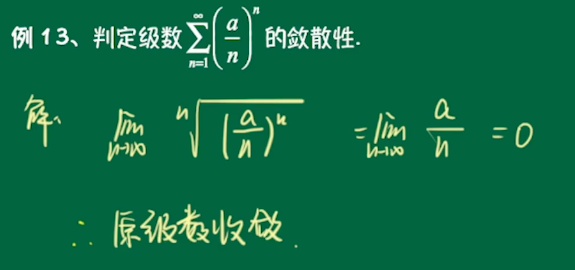 例 13、判定级数 $\sum_{n=1}^{\infty}\left(\frac{a}{n}\right)^n$ 的敛散性.
解、 $\lim_{n\to\infty} \sqrt[n]{\left(\frac{a}{n}\right)^n} = \lim_{n\to\infty} \frac{a}{n} = 0$
∴ 原级数收敛.